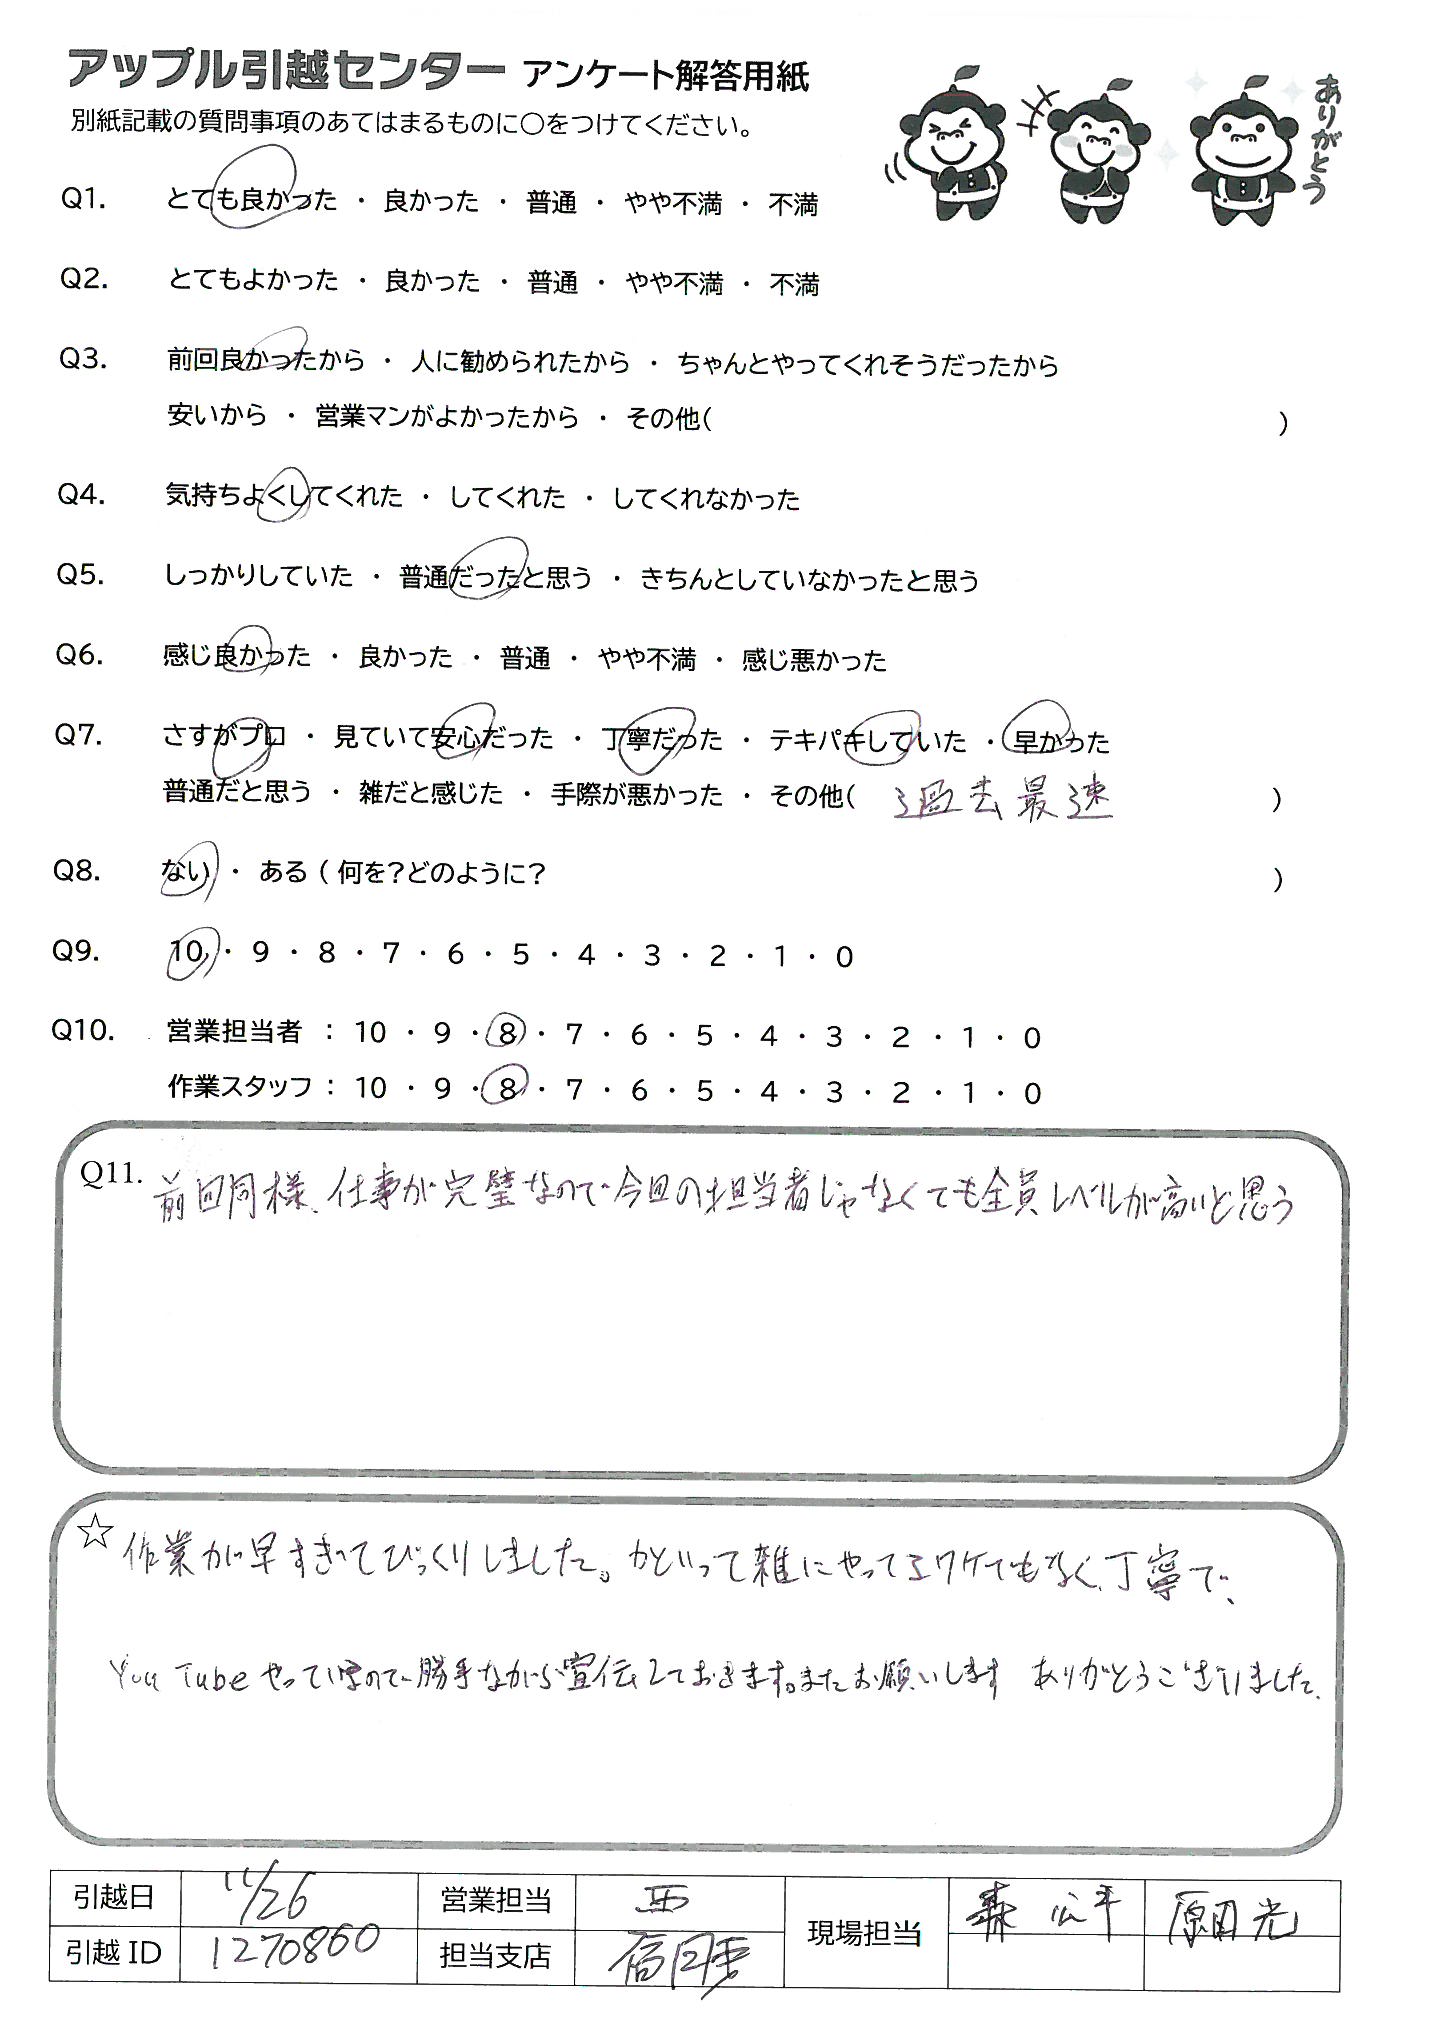 アップル引越センター アンケート解答用紙
別紙記載の質問事項のあてはまるものに○をつけてください。
ありがとう
Q1. とても良かった ・ 良かった ・ 普通 ・ やや不満 ・ 不満
Q2. とてもよかった ・ 良かった ・ 普通 ・ やや不満 ・ 不満
Q3. 前回良かったから ・ 人に勧められたから ・ ちゃんとやってくれそうだったから
安いから ・ 営業マンがよかったから ・ その他( )
Q4. 気持ちよくしてくれた ・ してくれた ・ してくれなかった
Q5. しっかりしていた ・ 普通だったと思う ・ きちんとしていなかったと思う
Q6. 感じ良かった ・ 良かった ・ 普通 ・ やや不満 ・ 感じ悪かった
Q7. さすがプロ ・ 見ていて安心だった ・ 丁寧だった ・ テキパキしていた ・ 早かった
普通だと思う ・ 雑だと感じた ・ 手際が悪かった ・ その他( 過去最速 )
Q8. ない ・ ある ( 何を?どのように? )
Q9. 10 ・ 9 ・ 8 ・ 7 ・ 6 ・ 5 ・ 4 ・ 3 ・ 2 ・ 1 ・ 0
Q10. 営業担当者 : 10 ・ 9 ・ 8 ・ 7 ・ 6 ・ 5 ・ 4 ・ 3 ・ 2 ・ 1 ・ 0
作業スタッフ : 10 ・ 9 ・ 8 ・ 7 ・ 6 ・ 5 ・ 4 ・ 3 ・ 2 ・ 1 ・ 0
Q11. 前回同様、仕事が完璧なので今回の担当者じゃなくても全員レベルが高いと思う
☆ 作業が早すぎてびっくりしました。かといって雑にやってるワケでもなく、丁寧で、
YouTubeやっているので勝手ながら宣伝しておきます。またお願いします ありがとうございました.
引越日 11/26 営業担当 西 現場担当 森 公平 原田 光
引越ID 1270860 担当支店